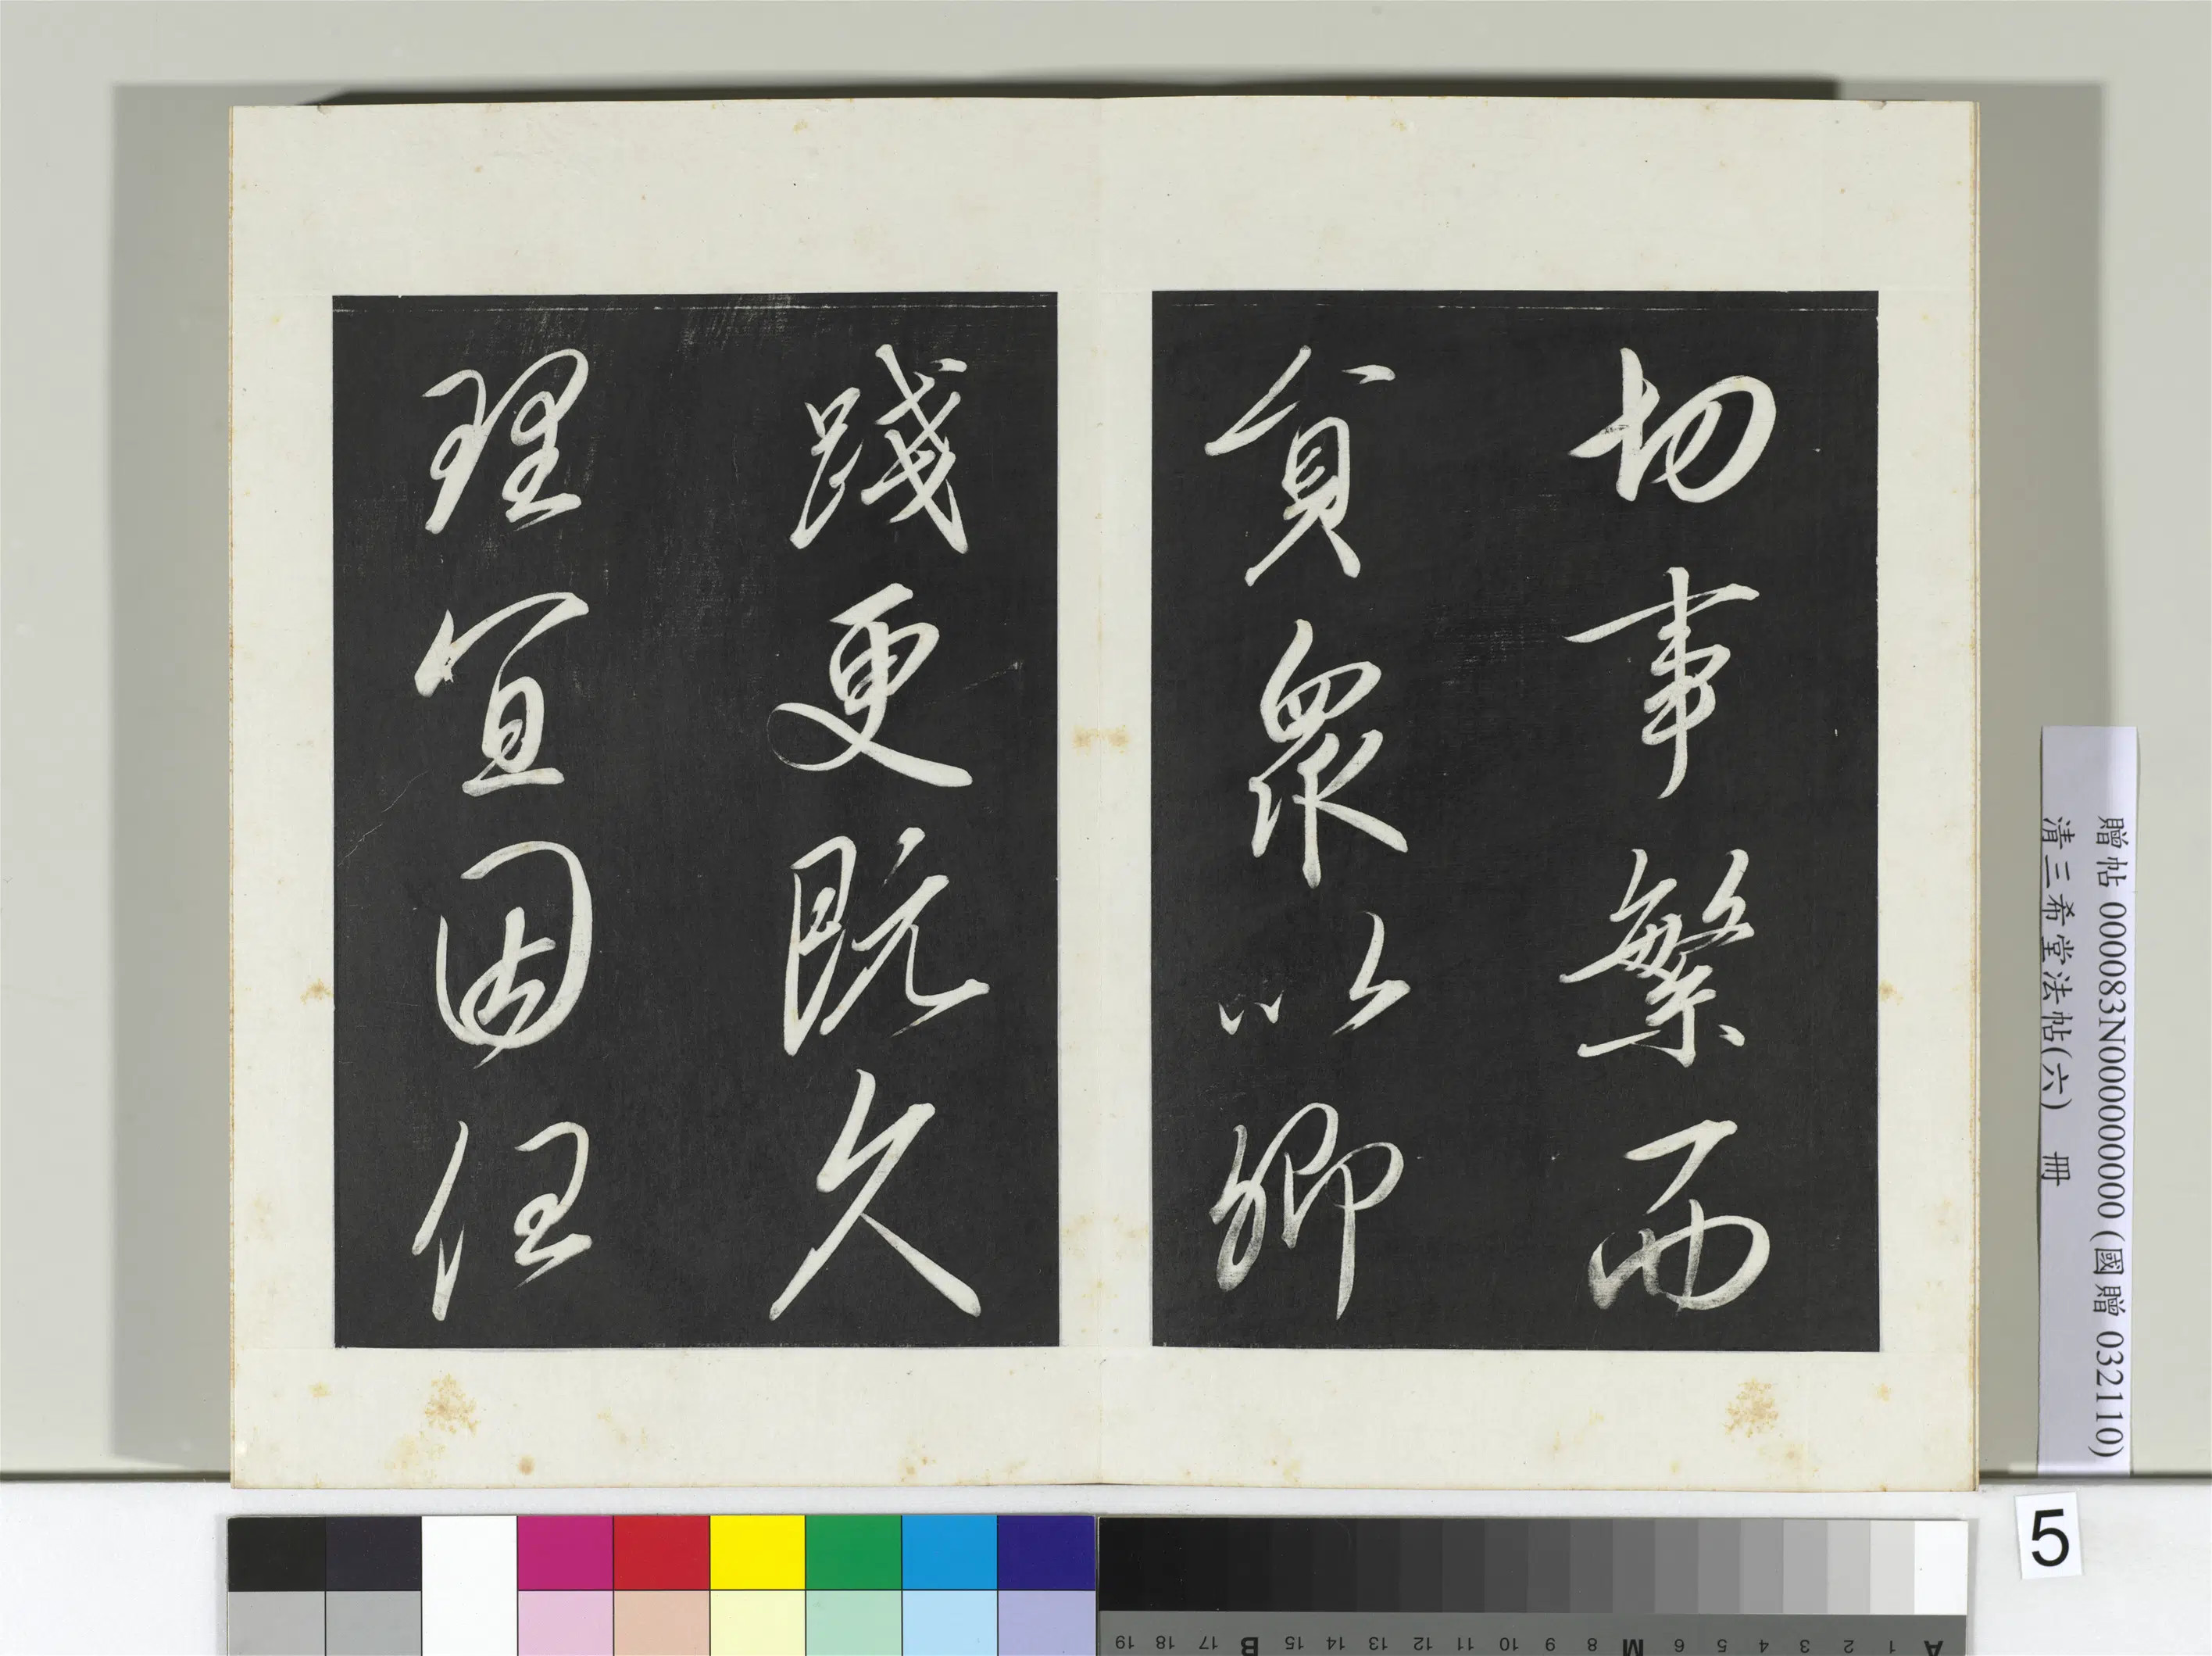 切事繁而
員眾以卿
踐更既久
理宜因任
贈帖 000083N000000000 (國贈 032110)
清三希堂法帖(六) 冊
5
A 1 2 3 4 5 6 M 8 9 10 11 12 13 14 15 B 17 18 19